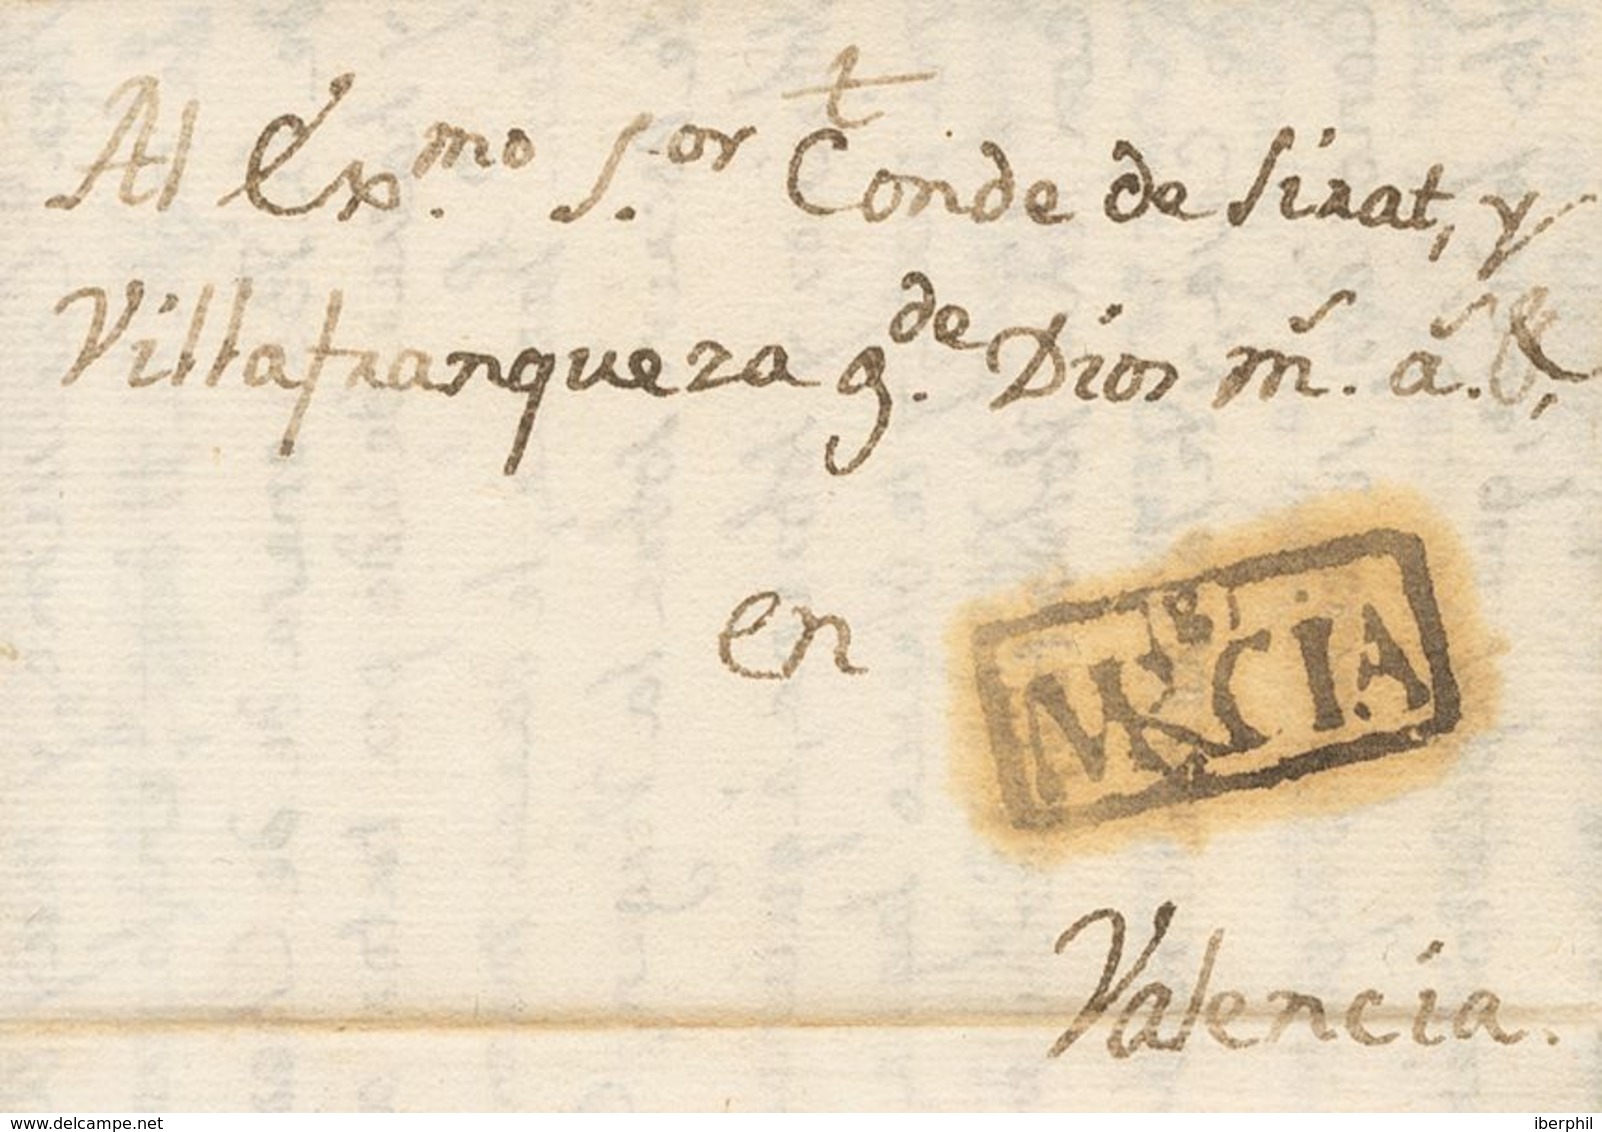 t
Al Exmo. S.or Conde de Sirat, y
Villafranqueza g.de Dios ms. as. &,
en
MURCIA
Valencia.
www.delcampe.net
iberphil